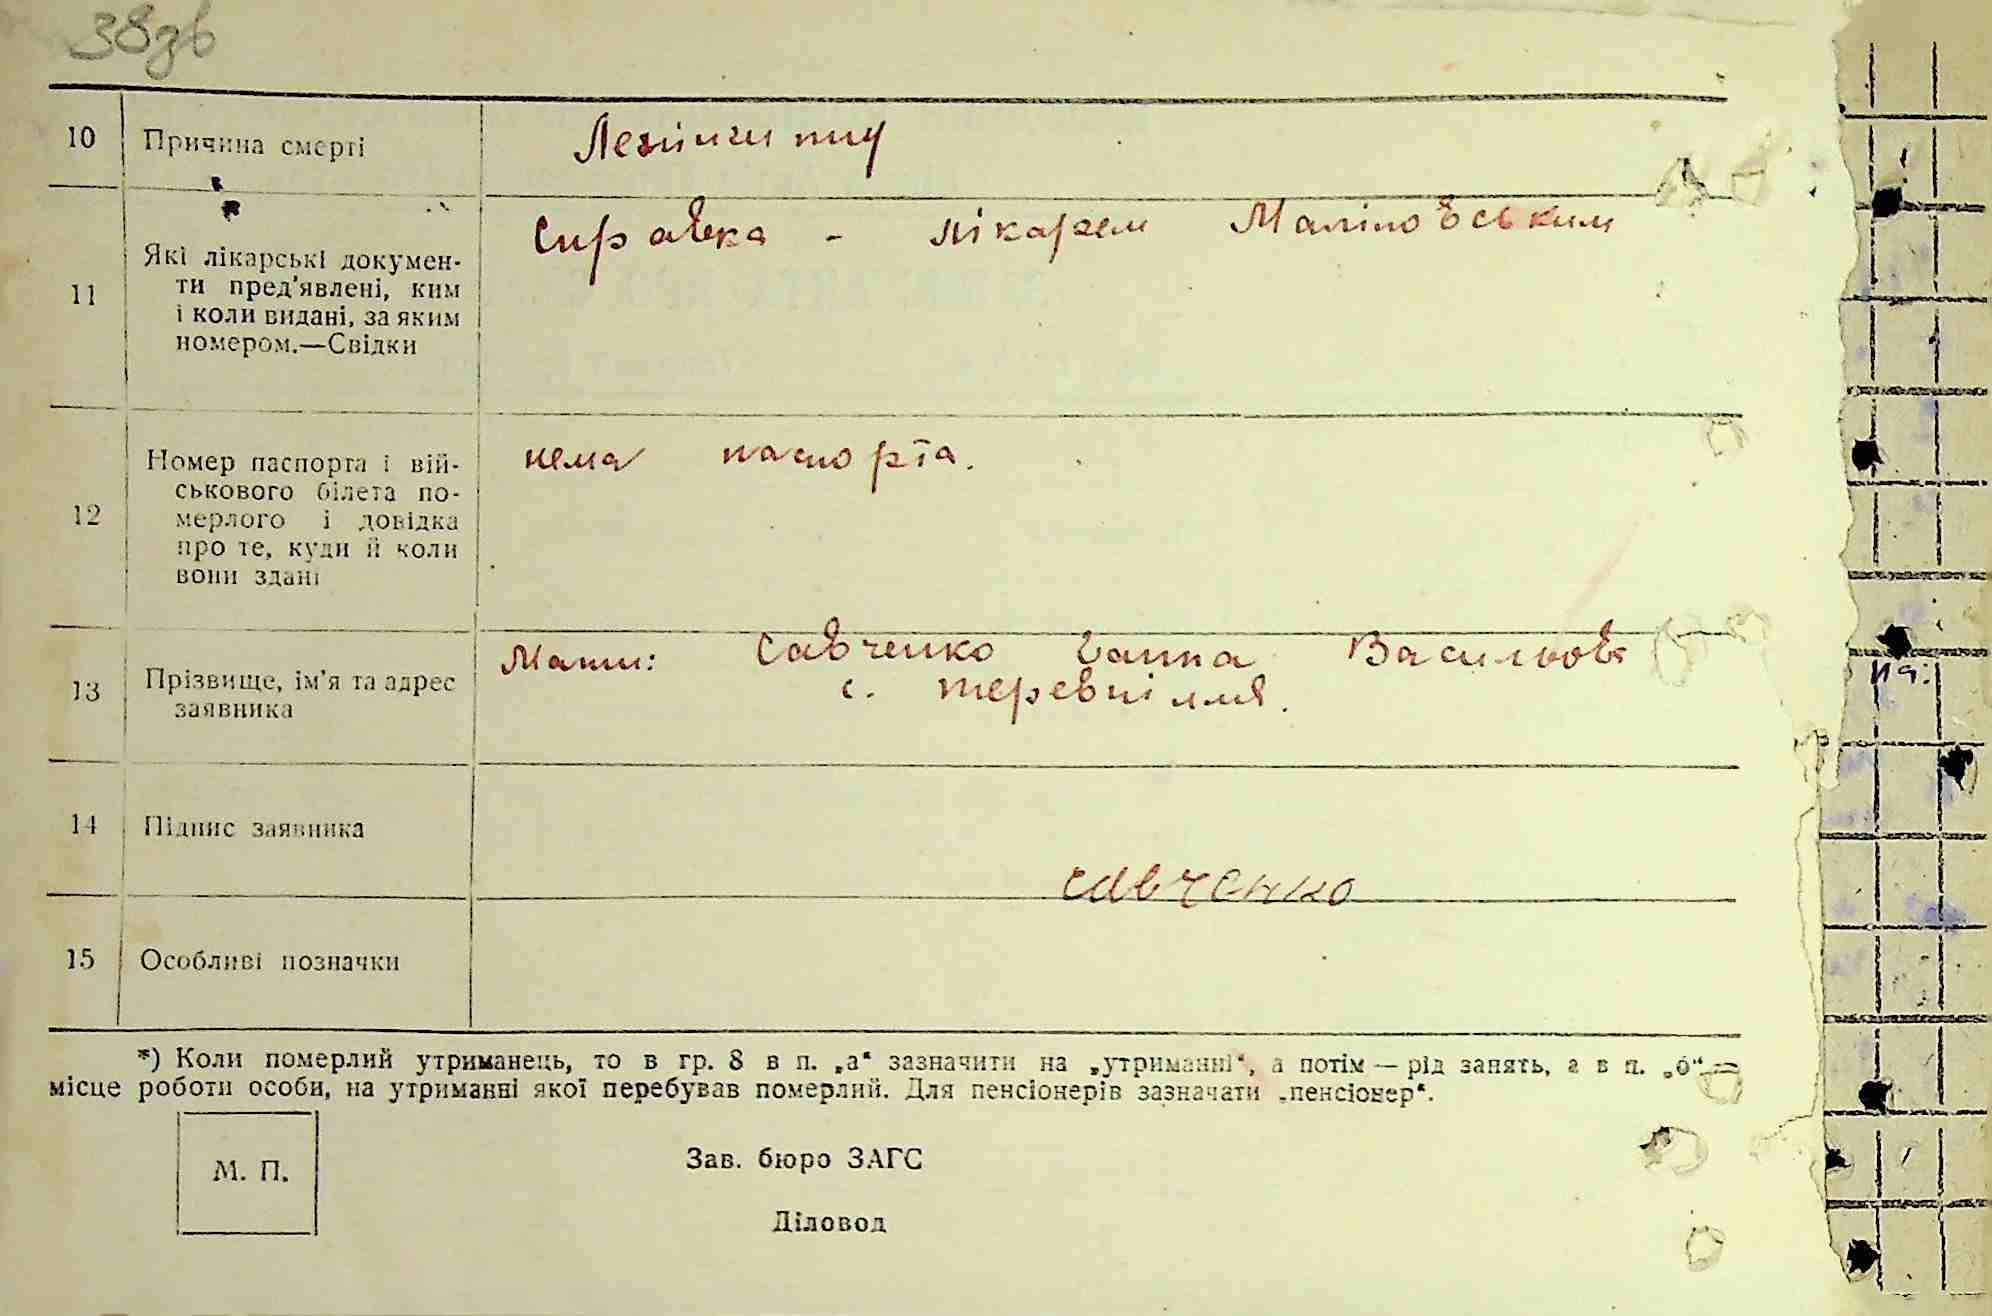 38зв
10 Причина смерті
Менінгит
11 Які лікарські докумен-
ти пред'явлені, ким
і коли видані, за яким
номером.—Свідки
Справка - лікарем Маліновським
12 Номер паспорта і вій-
ськового білета по-
мерлого і довідка
про те, куди й коли
вони здані
нема паспорта.
13 Прізвище, ім'я та адрес
заявника
Мати: Савченко Ганна Васильов
с. теревпілля.
14 Підпис заявника
савченко
15 Особливі позначки
*) Коли померлий утриманець, то в гр. 8 в п. „а“ зазначити на „утриманні“, а потім — рід занять, а в п. „б“ —
місце роботи особи, на утриманні якої перебував померлий. Для пенсіонерів зазначати „пенсіонер“.
М. П.
Зав. бюро ЗАГС
Діловод